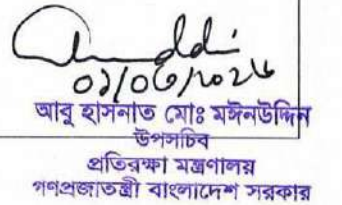 ০১/০৬/২০২৬
আবু হাসনাত মোঃ মঈনউদ্দিন
উপসচিব
প্রতিরক্ষা মন্ত্রণালয়
গণপ্রজাতন্ত্রী বাংলাদেশ সরকার